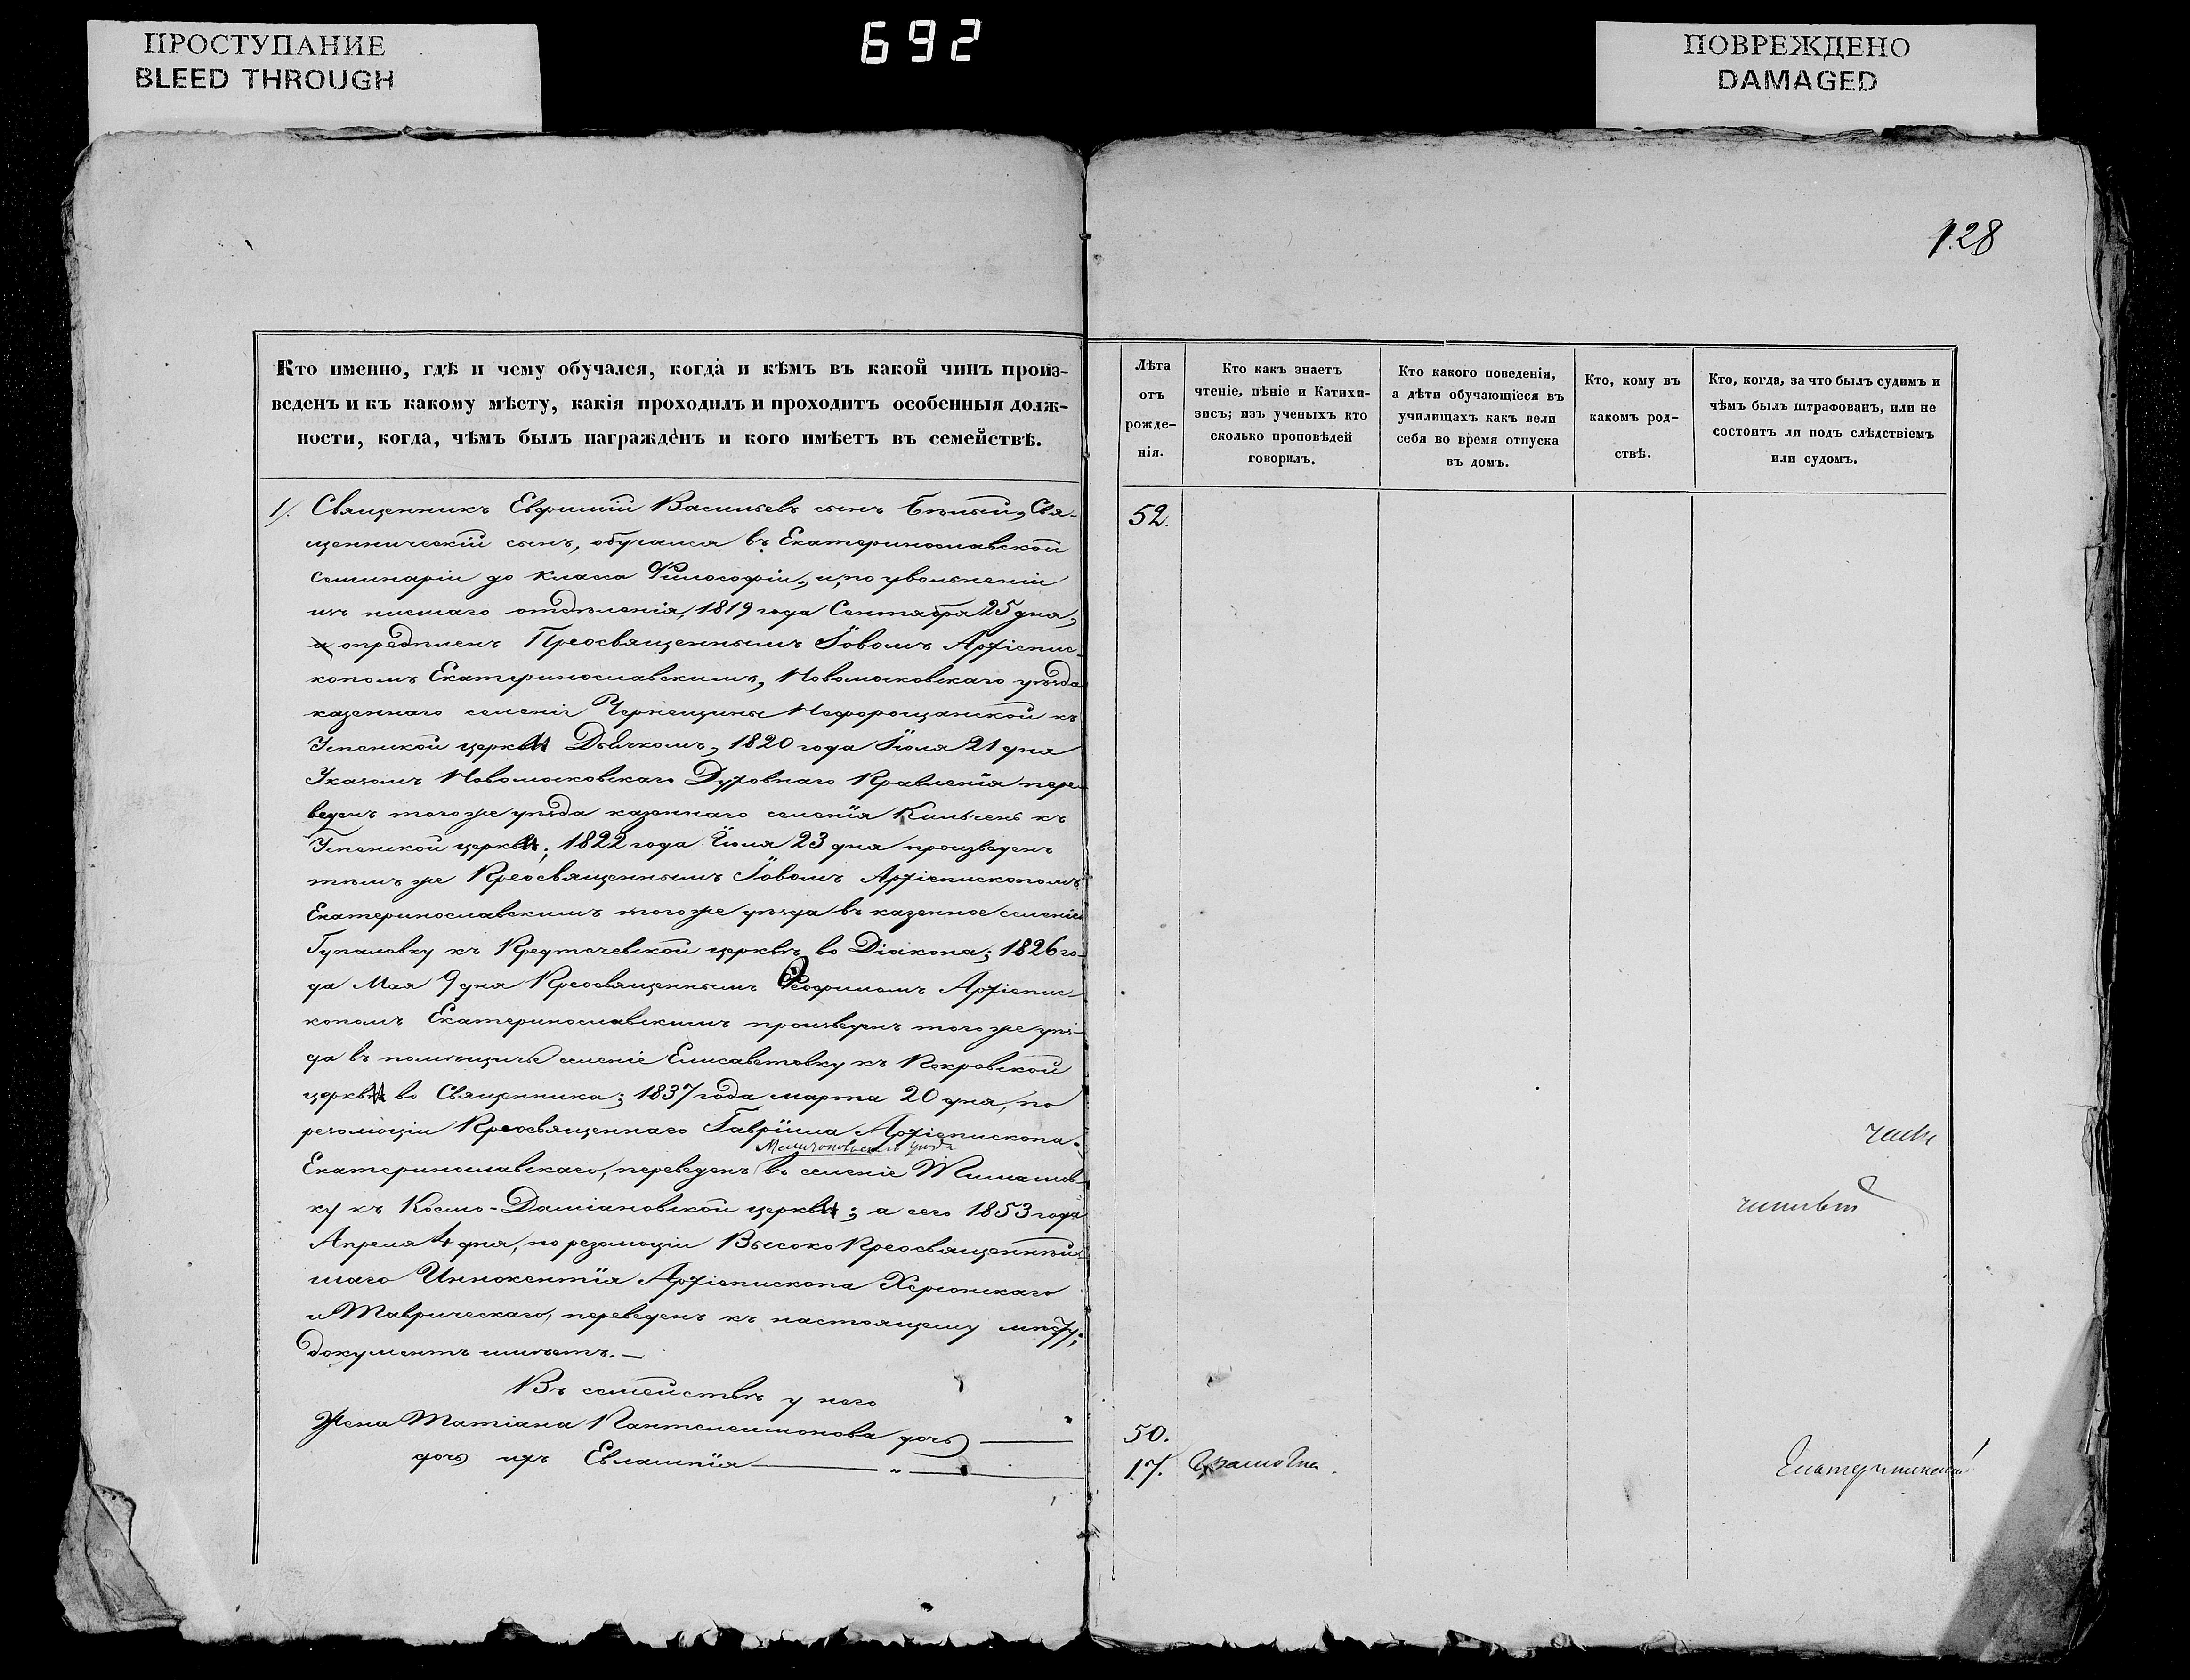 ПРОСТУПАНИЕ
BLEED THROUGH
692
ПОВРЕЖДЕНО
DAMAGED
128
Кто именно, гдѣ и чему обучался, когда и кѣмъ въ какой чинъ произ-
веденъ и къ какому мѣсту, какія проходилъ и проходитъ особенныя долж-
ности, когда, чѣмъ былъ награжденъ и кого имѣетъ въ семействѣ.
Лѣта
отъ
рожде-
нія.
Кто какъ знаетъ
чтеніе, пѣніе и Катихи-
зисъ; изъ ученыхъ кто
сколько проповѣдей
говорилъ.
Кто какого поведенія,
а дѣти обучающіеся въ
училищахъ какъ вели
себя во время отпуска
въ домъ.
Кто, кому въ
какомъ род-
ствѣ.
Кто, когда, за что былъ судимъ и
чѣмъ былъ штрафованъ, или не
состоитъ ли подъ слѣдствіемъ
или судомъ.
1/. Священникъ Евфимій Васильевъ сынъ Бѣлый, Свя-
щенническій сынъ, обучался въ Екатеринославской
Семинаріи до класса Философіи, и, по увольненіи
изъ нисшаго отдѣленія, 1819 года Сентября 25 дня,
опредѣленъ Преосвященнымъ Іовомъ Архіепис-
копомъ Екатеринославскимъ, Новомосковскаго уѣзда
казеннаго селенія Чернещины Нефорощанской къ
Успенской церкви Дьячкомъ, 1820 года Іюля 21 дня
Указомъ Новомосковскаго Духовнаго Правленія пере-
веденъ того же уѣзда казеннаго селенія Кильчень къ
Успенской церкви; 1822 года Іюля 23 дня произведенъ
тѣмъ же Преосвященнымъ Іовомъ Архіепископомъ
Екатеринославскимъ того же уѣзда въ казенное селеніе
Гупаловку къ Предтечевской церквѣ во Діакона; 1826 го-
да Мая 9 дня Преосвященнымъ Ѳеофиломъ Архіепис-
копомъ Екатеринославскимъ произведенъ того же уѣз-
да въ помѣщичье селеніе Елисаветовку къ Покровской
церкви во Священника; 1837 года марта 20 дня, по
резолюціи Преосвященнаго Гавріила Архіепископа
Екатеринославскаго, переведенъ въ селеніе Тимашов-
ку къ Космо-Даміановской церкви; а сего 1853 года
Апреля 4 дня, по резолюціи Высоко Преосвященнѣй-
шаго Иннокентія Архіепископа Херсонскаго
и Таврическаго, переведенъ къ настоящему мѣсту;
документъ имѣетъ.—
Въ семействѣ у него
Жена Татіана Пантелеимонова дочь
дочь ихъ Евлампія
52.
50.
17. Грамотна.